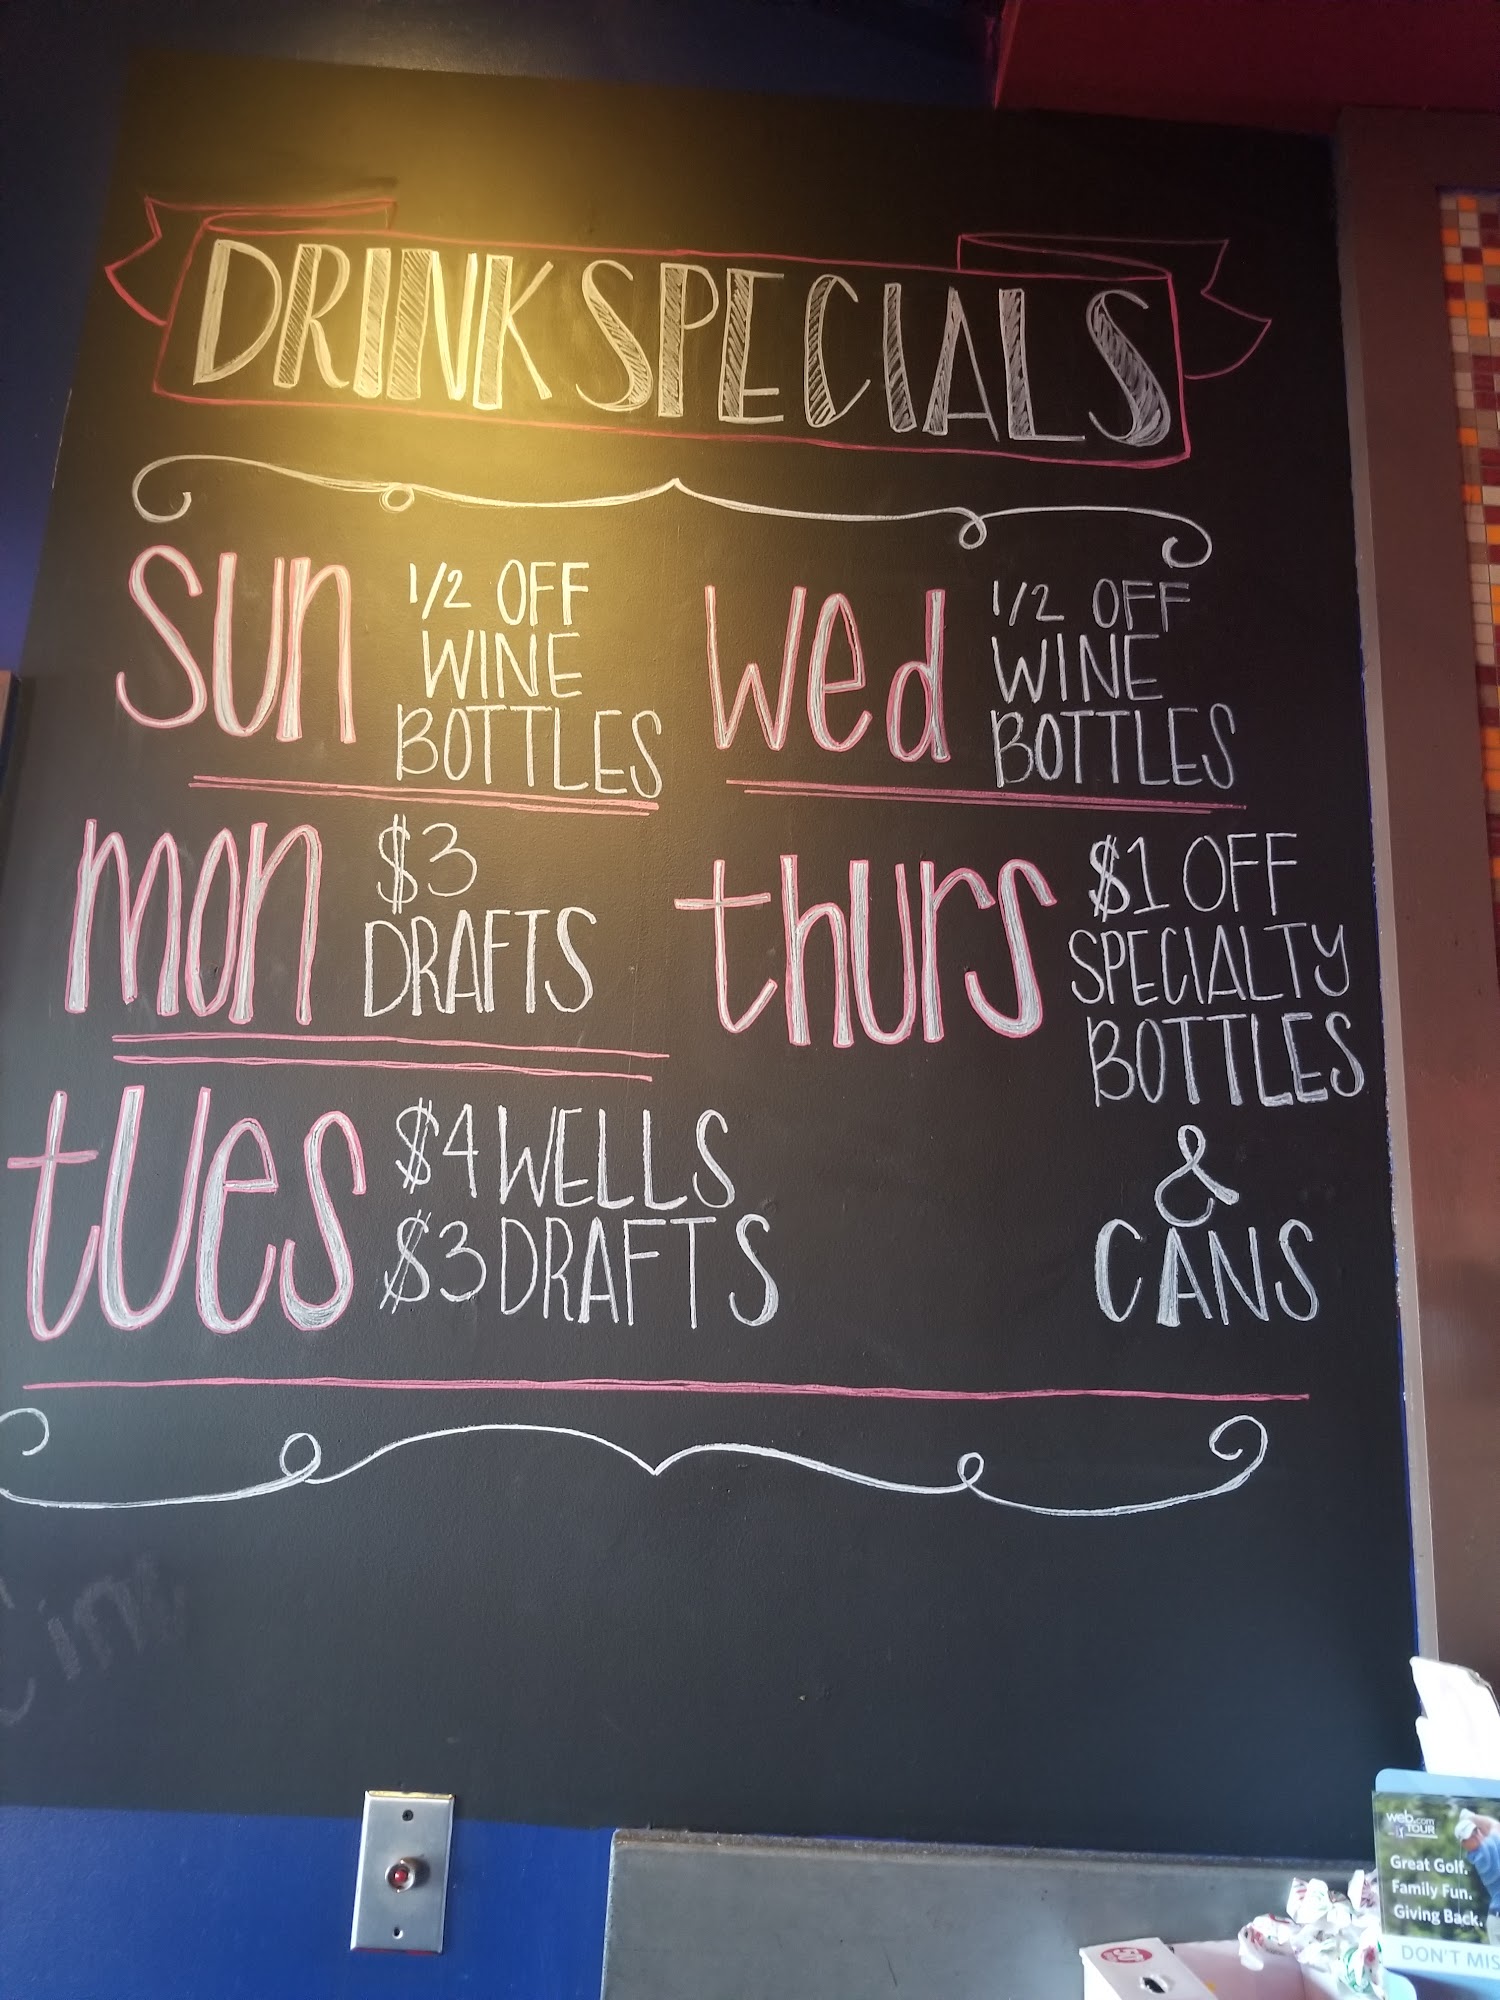 DRINK SPECIALS
sun
1/2 OFF
WINE
BOTTLES
mon
$3
DRAFTS
tues
$4 WELLS
$3 DRAFTS
wed
1/2 OFF
WINE
BOTTLES
thurs
$1 OFF
SPECIALTY
BOTTLES
&
CANS
web.com
TOUR
Great Golf.
Family Fun.
Giving Back.
DON'T MIS